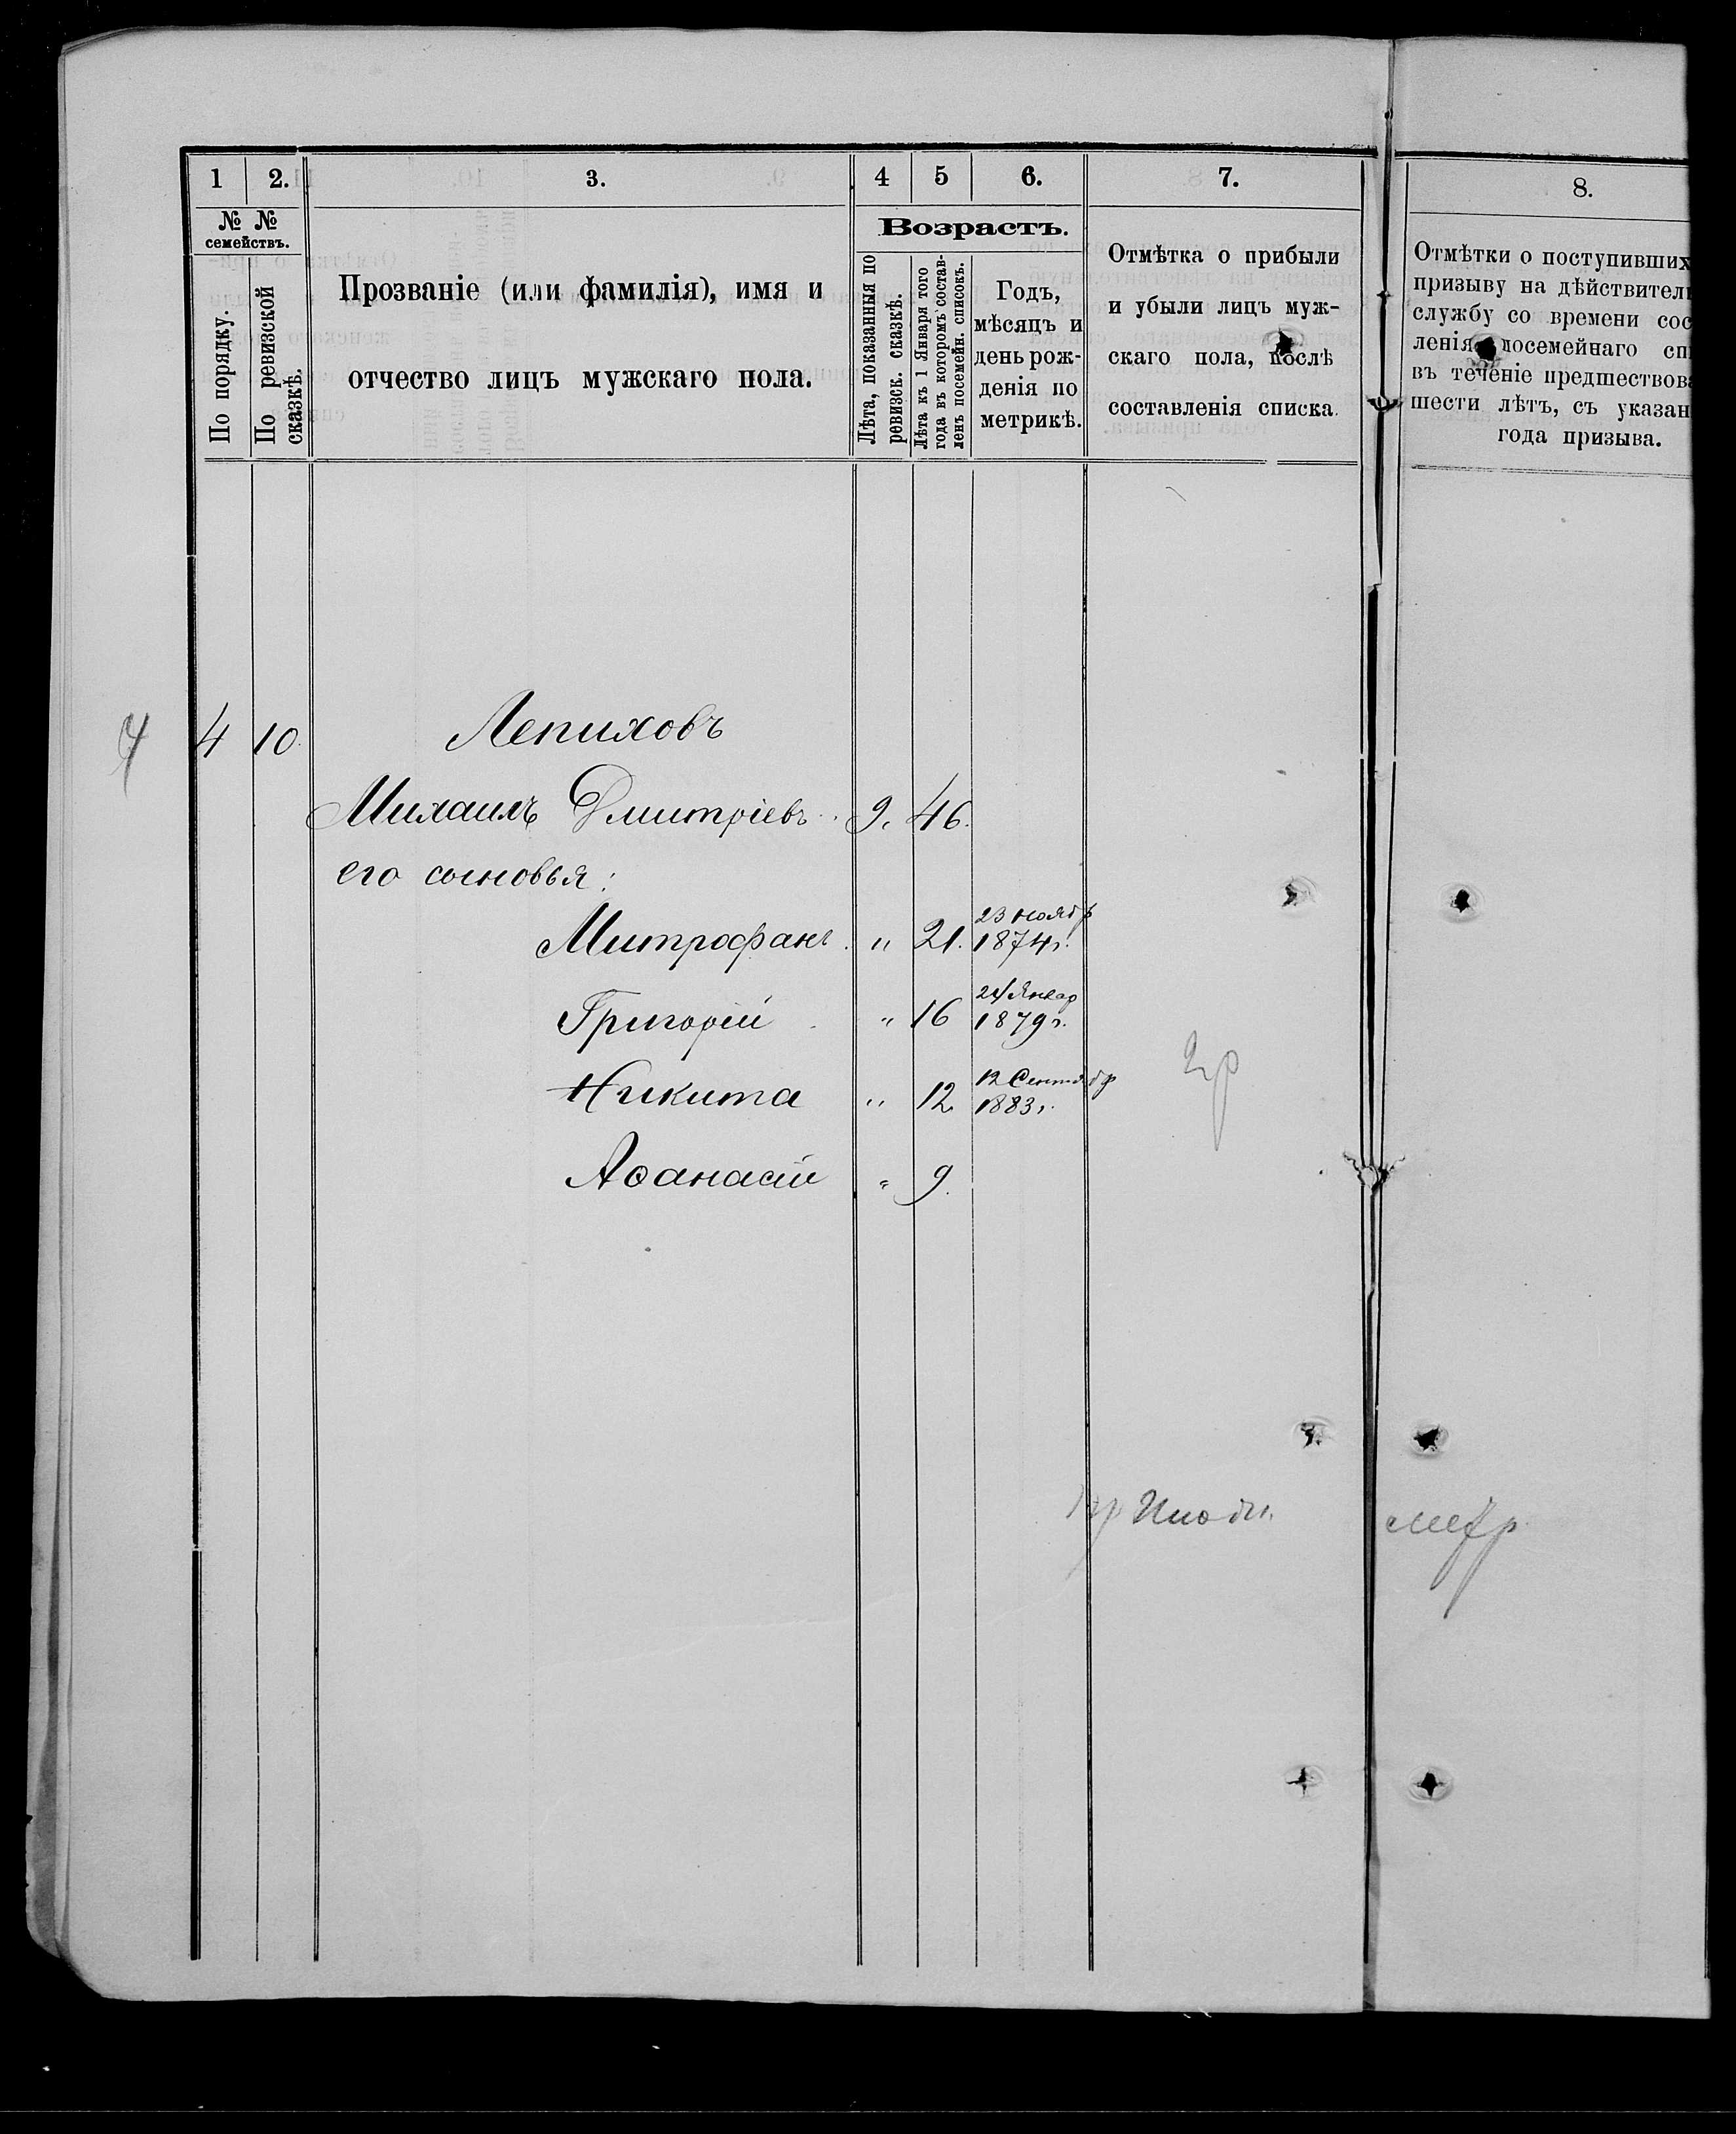 1 2. 3. 4 5 6. 7. 8.
№ №
семействъ.
По порядку.
По ревизской
сказкѣ.
Прозваніе (или фамилія), имя и
отчество лицъ мужскаго пола.
Возрастъ.
Лѣта, показанныя по
ревизск. сказкѣ.
Лѣта къ 1 Января того
года въ которомъ состав-
ленъ посемейн. списокъ.
Годъ,
мѣсяцъ и
день рож-
денія по
метрикѣ.
Отмѣтка о прибыли
и убыли лицъ муж-
скаго пола, послѣ
составленія списка.
Отмѣтки о поступивших
призыву на дѣйствител
службу со времени сос
ленія посемейнаго сп
въ теченіе предшествов
шести лѣтъ, съ указан
года призыва.
4 4 10. Лепиховъ
Михаилъ Дмитріевъ. 9. 46.
его сыновья:
Митрофанъ. „ 21. 23 Ноябр
1874 г.
Григорій „ 16 24 Январ
1879 г.
Никита „ 12 12 Сентябр
1883 г.
Аѳанасій „ 9.